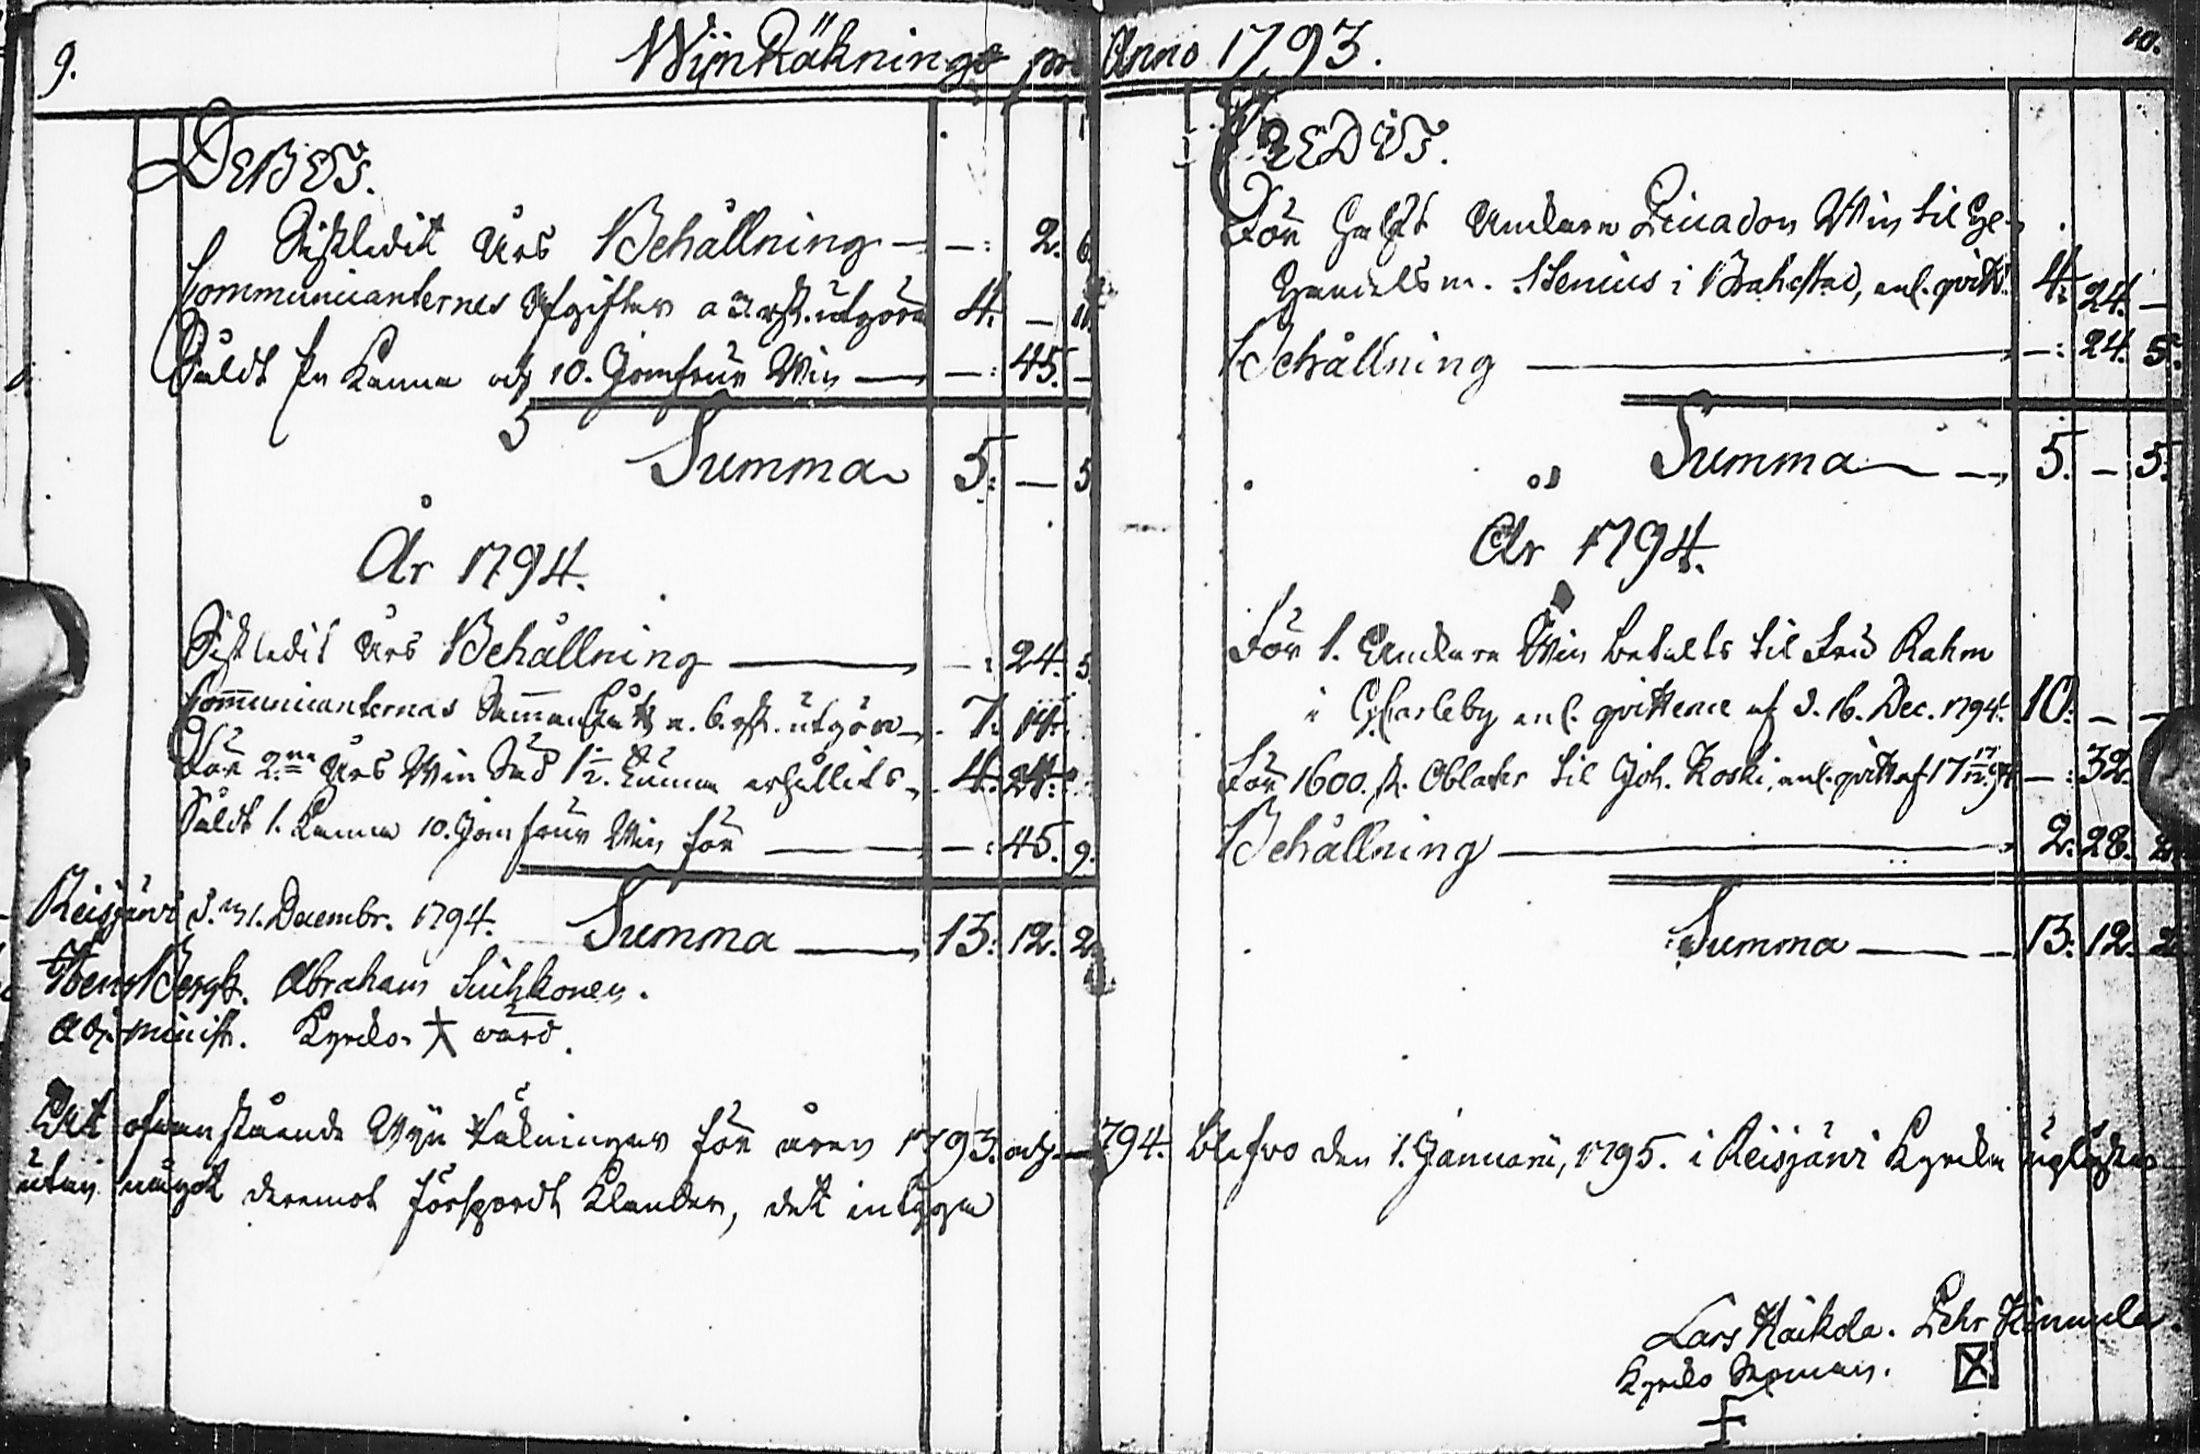 9. WijnRäkninge pro Anno 1793. 10.
DEBET.
Sistledit Års Behållning — —: 2. 6.
Communicanternes Afgifter a 3 rst. utgöra 4. — 11.
Såldt En Kanna och 10. Jomfrur Win — —: 45. —
Summa 5: — 5
År 1794.
Sistledit Års Behållning — —: 24. 5.
Communicanternas Sammanskått a. 6. rst. utgör 7. 14.
För 2:ne Års Win Säd 1 1/2. Tunna erhållits 4. 24.
Såldt 1. Kanna 10. Jomfrur Win för — —: 45. 9.
Summa — 13: 12. 2
Reisjärvi d. 31. Decembr. 1794.
Bergh. Abraham Luihkonen.
Adj. minist. Kyrko-värd.
CREDIT.
För Halft Anckare Win til
Handelsm. Stenius i Brahestad, enl. qvitt. 4: 24. —
Behållning — —: 24. 5.
Summa — 5. — 5.
År 1794.
För 1. Anckare Win betalts til Rahm
i G:Carleby enl. qvittence af d. 16. Dec. 1794. 10: — —
För 1600. st. Oblater til Joh. Koski, enl. qvitt af 17 17/12. 94 —: 32.
Behållning — 2. 28. 2.
Summa — 13: 12. 2
At ofvanstående Wijn Räkningar för åren 1793. och 1794. blefvo den 1. Januarii, 1795. i Reisjärvi Kyrcka upläste
utan något deremot försport klander, det intyga
Lars Kaikola. Pehr Kinnula.
Kyrko